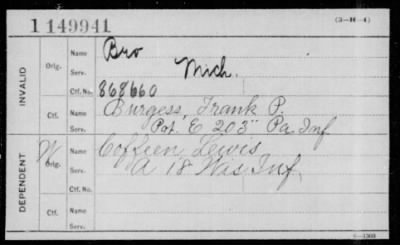 1 149941
(3-H-4)
INVALID
Orig.
Name Bro
Serv. Mich.
Ctf. No. 868660
Ctf.
Name Burgess, Frank P.
Serv. Pvt. E 203" Pa Inf
DEPENDENT
W Orig.
Name Coffeen, Lewis
Serv. A 18 Wis Inf
Ctf. No.
Ctf.
Name
Serv.